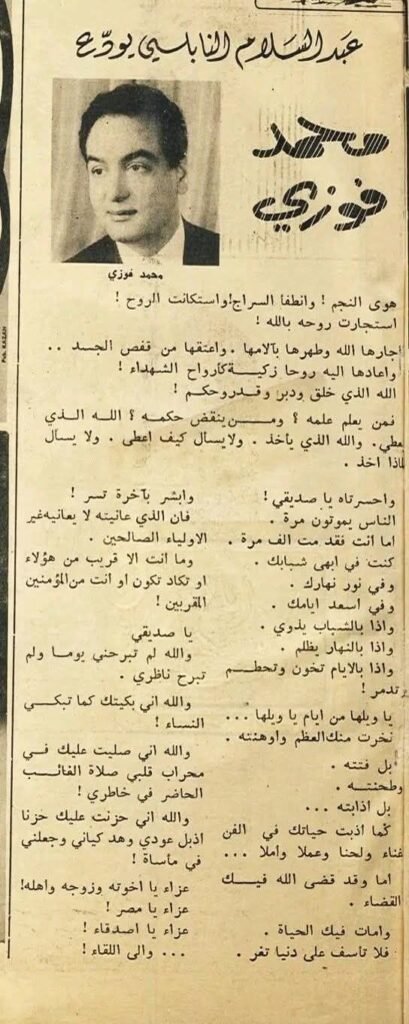 عبد السلام النابلسي يودّع
محمد
فوزي
محمد فوزي
هوى النجم ! وانطفا السراج!واستكانت الروح !
استجارت روحه بالله !
اجارها الله وطهرها بآلامها . واعتقها من قفص الجسد ..
واعادها اليه روحا زكيـة كارواح الشهداء !
الله الذي خلق ودبر وقـدر وحكم !
فمن يعلم علمه ؟ ومـــن ينقض حكمه ؟ اللـه الـذي
يعطي . والله الذي يأخذ . ولا يسال كيف اعطى . ولا يسال
لماذا اخذ .
واحسرتاه يا صديقي !
الناس يموتون مرة .
اما انت فقد مت الف مرة .
كنت في ابهى شبابك .
وفي نور نهارك .
وفي اسعد ايامك .
واذا بالشباب يذوي .
واذا بالنهار يظلم .
واذا بالايام تخون وتحطـــم
وتدمر !
يا ويلها من ايام يا ويلها ...
نخرت منك العظم واوهنته .
بل فتته .
وطحنتـه .
بل اذابته ...
كما اذبت حياتك في الفن
غناء ولحنا وعملا واملا ...
اما وقد قضى الله فيـــك
القضاء .
وامات فيك الحياة .
فلا تاسف على دنيا تغر .
وابشر بآخرة تسر !
فان الذي عانيته لا يعانيه غير
الاولياء الصالحين .
وما انت الا قريب من هؤلاء
او تكاد تكون او انت من المؤمنين
المقربين !
يا صديقي
والله لم تبرحني يوما ولم
تبرح ناظري .
والله اني بكيتك كما تبكـــي
النساء !
والله اني صليت عليك فـي
محراب قلبي صلاة الغائــب
الحاضر في خاطري !
والله اني حزنت عليك حزنا
اذبل عودي وهد كياني وجعلني
في مأساة !
عزاء يا اخوته وزوجه واهله!
عزاء يا مصر !
عزاء يا اصدقاء !
... والى اللقاء !